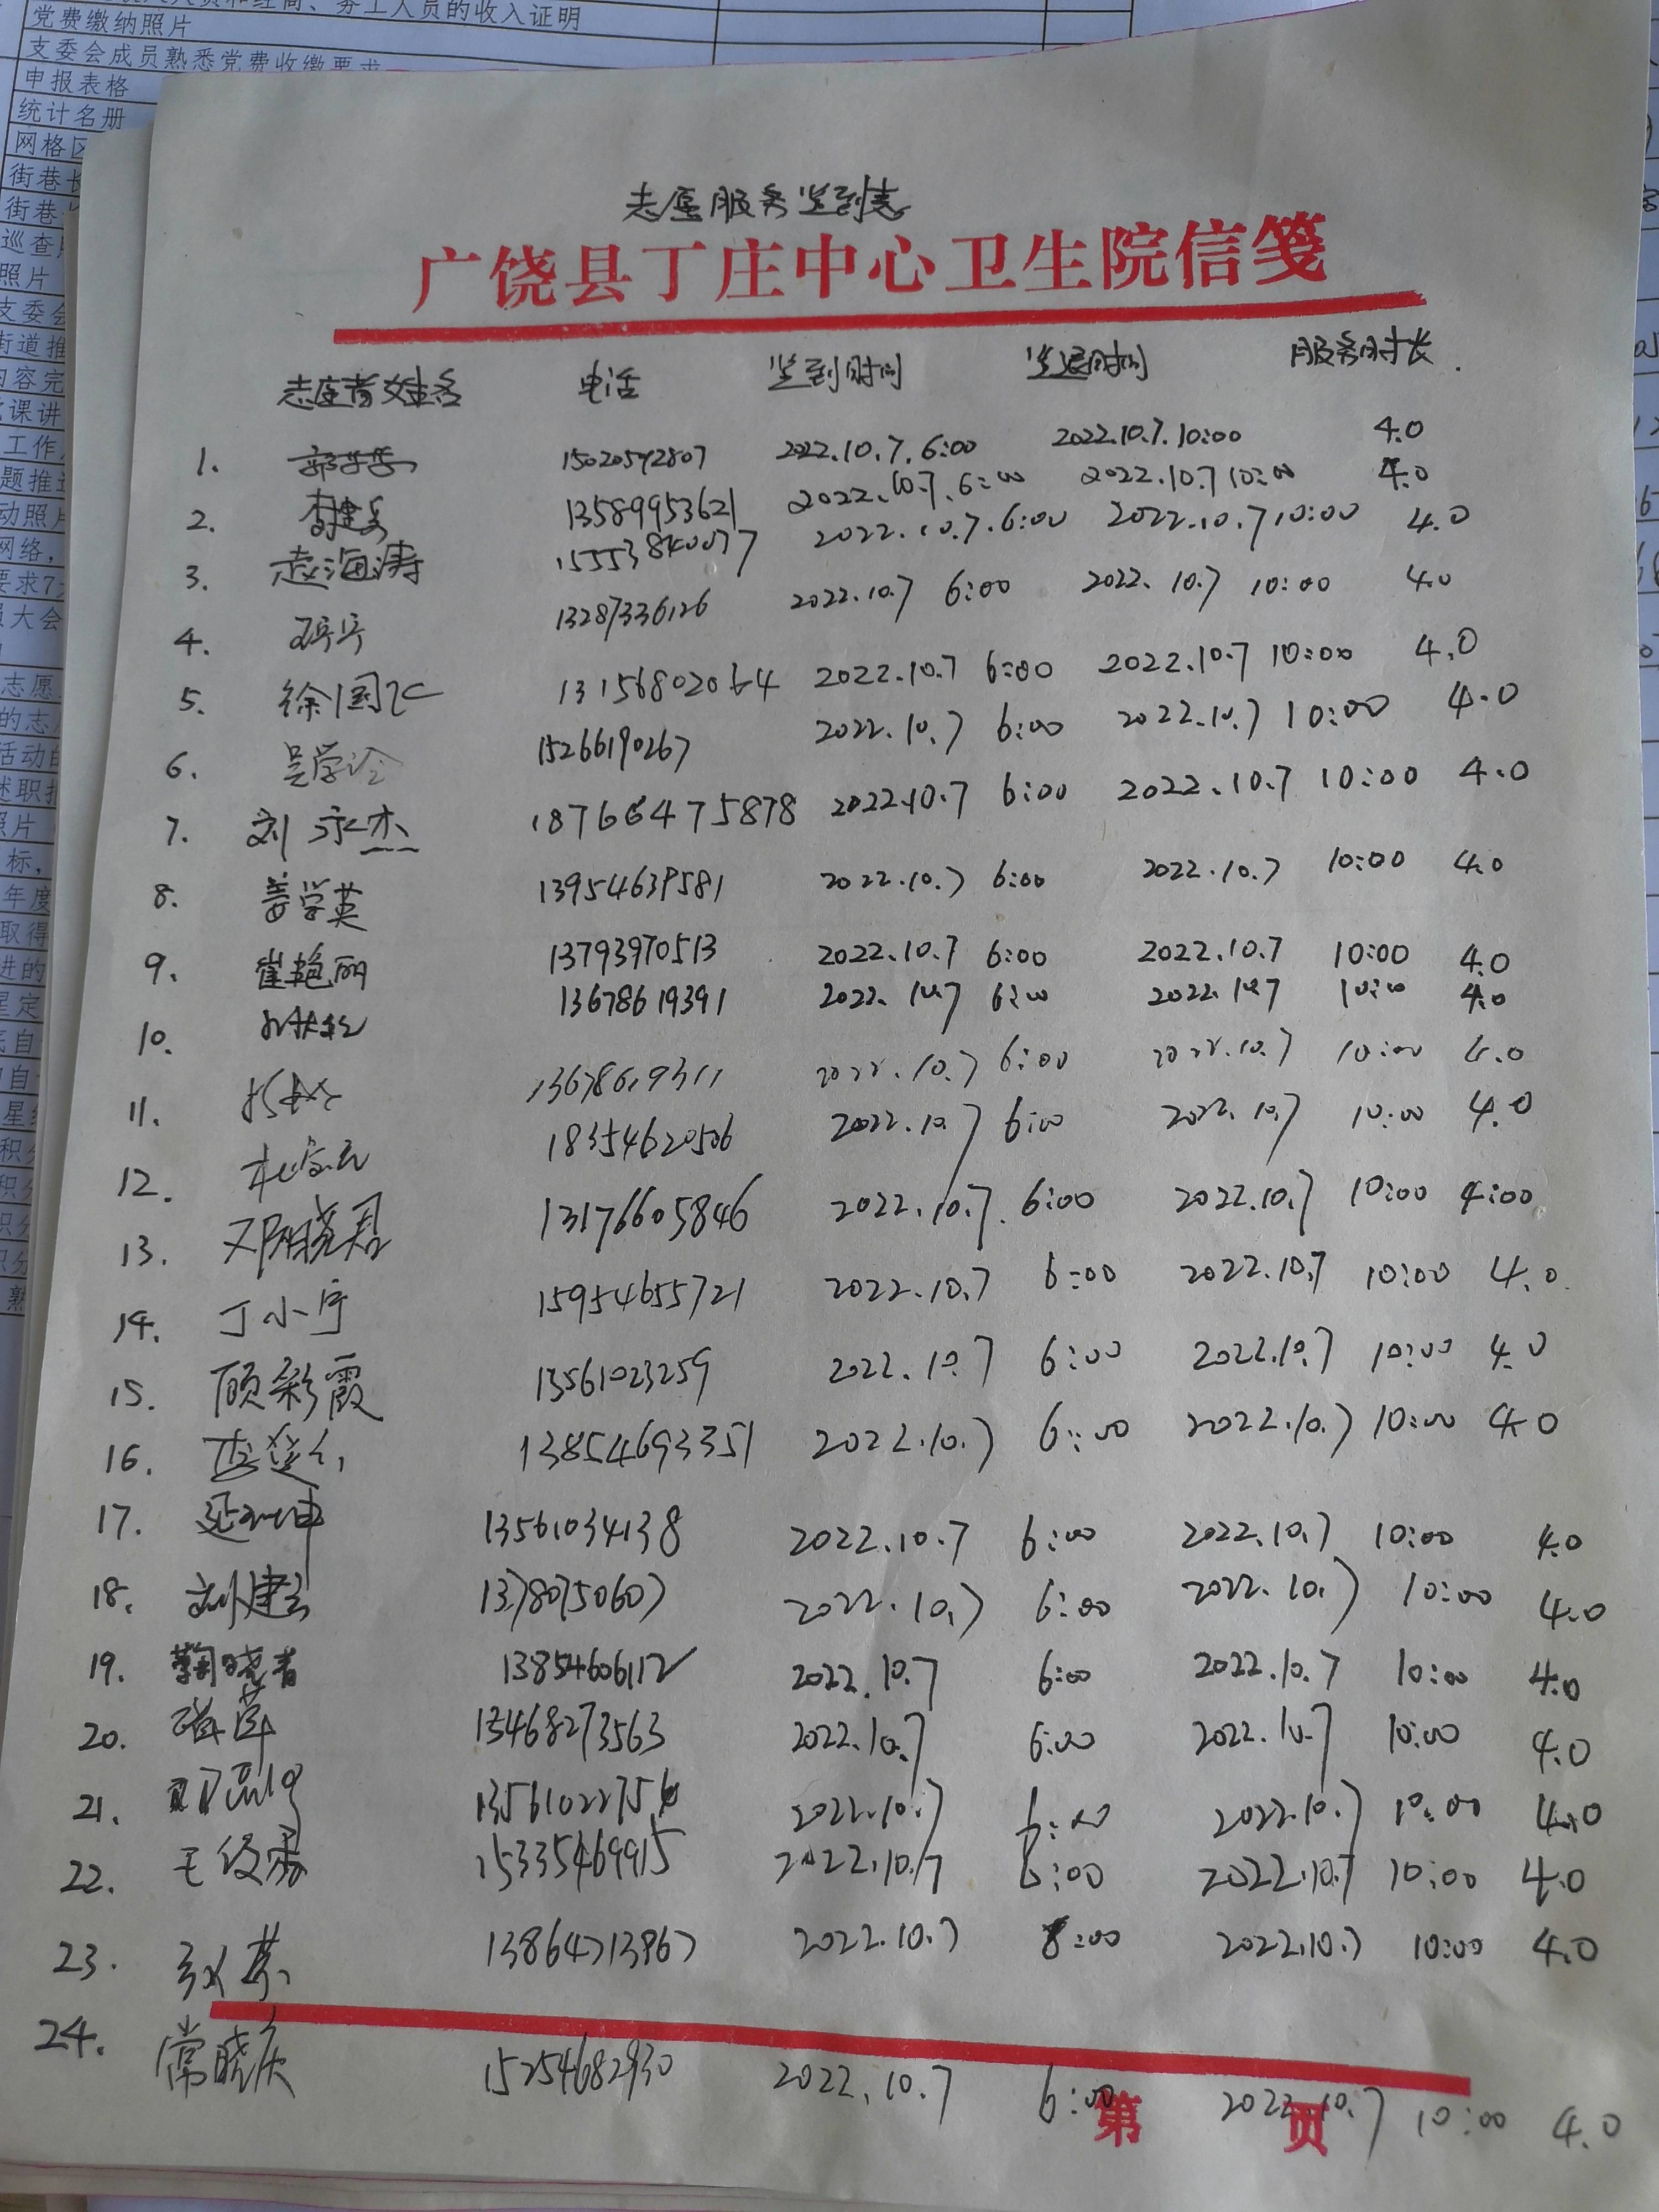 党费缴纳照片
支委会成员熟悉党费收缴要求
申报表格
统计名册
网格
街巷长
街巷
巡查
照片
支委会
街道推
内容完
课讲
工作
题推进
动照片
网络，
要求7
大会
志愿
的志
活动
述职
照片
标，
年度
取得
进的
星定
积分
积分
志愿服务签到表
广饶县丁庄中心卫生院信笺
志愿者姓名 电话 签到时间 签退时间 服务时长
1. 15020542807 2022.10.7. 6:00 2022.10.7. 10:00 4.0
2. 李建兵 13589953621 2022.10.7. 6:00 2022.10.7 10:00 4.0
3. 赵海涛 15553840077 2022.10.7. 6:00 2022.10.7 10:00 4.0
4. 13287336126 2022.10.7 6:00 2022.10.7 10:00 4.0
5. 徐国 13156802064 2022.10.7 6:00 2022.10.7 10:00 4.0
6. 吴学 15266190267 2022.10.7 6:00 2022.10.7 10:00 4.0
7. 刘永杰 18766475878 2022.10.7 6:00 2022.10.7 10:00 4.0
8. 姜学英 13954639581 2022.10.7 6:00 2022.10.7 10:00 4.0
9. 崔艳丽 13793970513 2022.10.7 6:00 2022.10.7 10:00 4.0
10. 13678619391 2022.10.7 6:00 2022.10.7 10:00 4.0
11. 13678619311 2022.10.7 6:00 2022.10.7 10:00 4.0
12. 18354620506 2022.10.7 6:00 2022.10.7 10:00 4.0
13. 邓晓君 13176605846 2022.10.7. 6:00 2022.10.7 10:00 4:00
14. 丁小宁 15954655721 2022.10.7 6:00 2022.10.7 10:00 4.0
15. 顾彩霞 13561023259 2022.10.7 6:00 2022.10.7 10:00 4.0
16. 13854693351 2022.10.7 6:00 2022.10.7 10:00 4.0
17. 延 坤 13561034138 2022.10.7 6:00 2022.10.7 10:00 4.0
18. 刘建 13780750607 2022.10.7 6:00 2022.10.7 10:00 4.0
19. 鞠晓青 13854606112 2022.10.7 6:00 2022.10.7 10:00 4.0
20. 13468273563 2022.10.7 6:00 2022.10.7 10:00 4.0
21. 13561022756 2022.10.7 6:00 2022.10.7 10:00 4.0
22. 王俊 15335469915 2022.10.7 6:00 2022.10.7 10:00 4.0
23. 13864713967 2022.10.7 6:00 2022.10.7 10:00 4.0
24. 常晓庆 15254682930 2022.10.7 6:00 2022.10.7 10:00 4.0
第 页